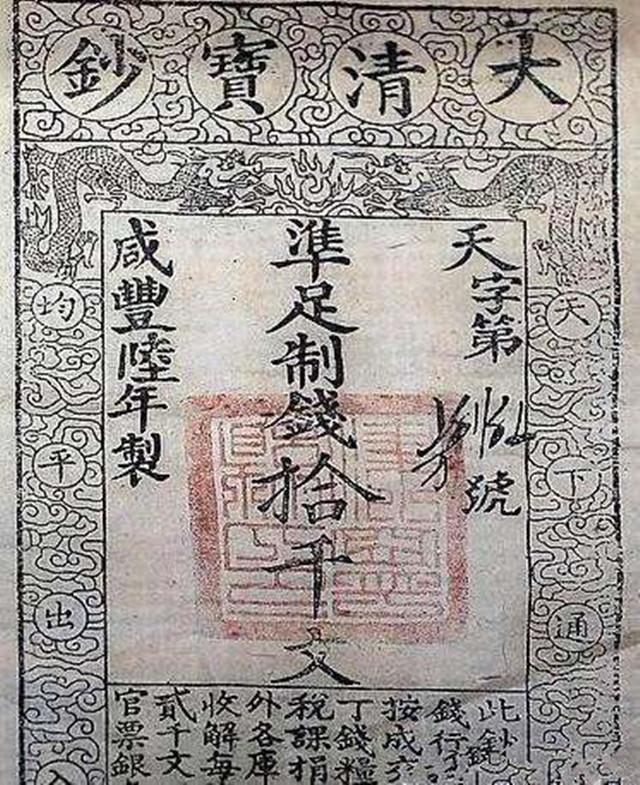 大清寶鈔
天字第
號
準足制錢拾千文
咸豐陸年製
天下通
均平出入
此鈔
錢行
按成交
丁錢糧
稅課捐
外各庫
收解每
貳千文
官票銀